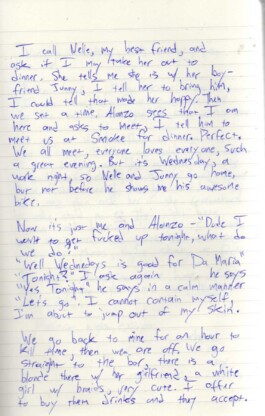 I call Nelle, my best friend, and
ask if I may take her out to
dinner. She tells me she is w/ her boy-
friend Junny, I tell her to bring him,
I could tell that made her happy. Then
we set a time. Alonzo sees that I am
here and asks to meet, I tell him to
meet us at Smokee for dinner. Perfect.
We all meet, everyone loves everyone, such
a great evening. But its Wednesday, a
work night, so Nele and Junny go home,
but not before he shows me his awesome
bike.
Now its just me and Alonzo - "Dude I
want to get fucked up tonight, what do
we do!"
"Well Wednesdays is good for Da Maria"
"Tonight?" I ask again he says
"Yes Tonight" he says in a calm manner
"Lets go". I cannot contain myself,
I'm about to jump out of my skin.
We go back to mine for an hour to
kill time, then we are off. We go
straight to the bar, there is a
blonde there w/ her girlfriend, a white
girl w/ braids, very cute. I offer
to buy them drinks and they accept.